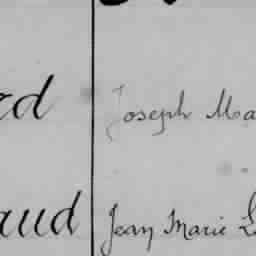 rd Joseph Ma
aud Jean Marie L